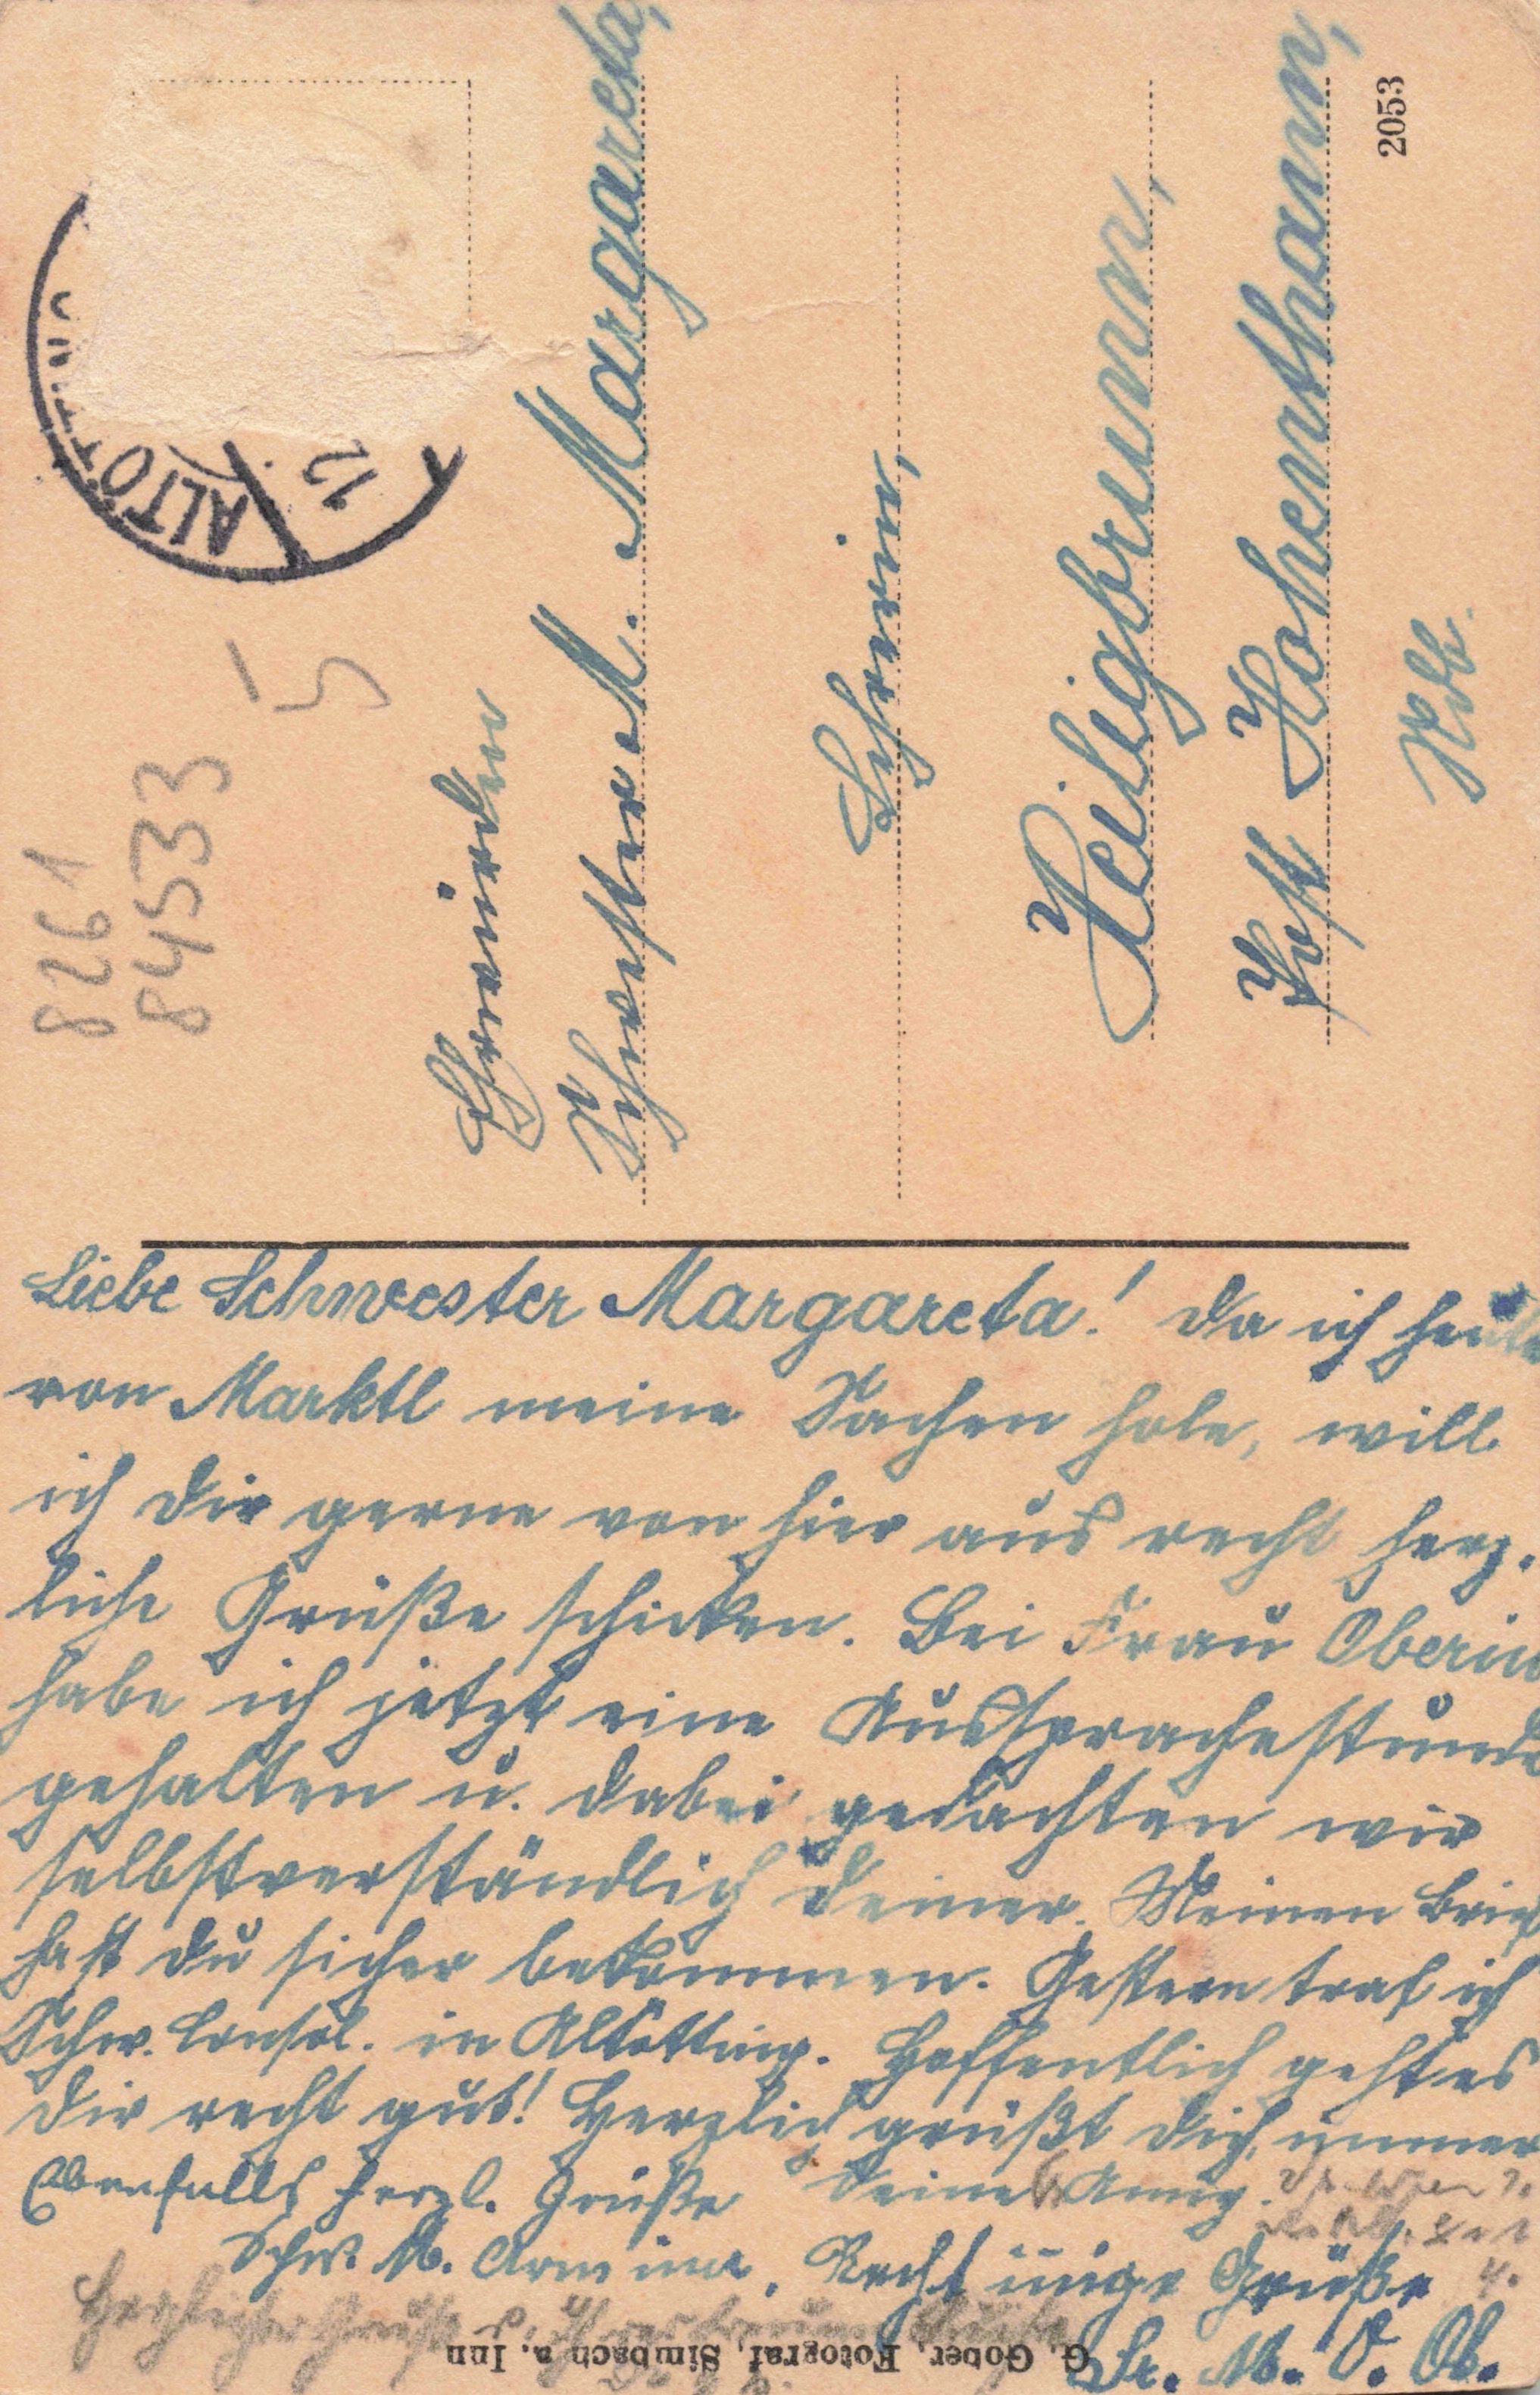 ALTÖTTING
12
8261
84533
5
Ehrwürden
Schwester M. Margareta,
Lehrerin,
Heiligbrunn,
Post Hohenthann,
Ndb.
2053
Liebe Schwester Margareta! Da ich heute
von Marktl meine Sachen hole, will
ich Dir gerne von hier aus recht herz-
liche Grüße schicken. Bei Frau Oberin
habe ich jetzt eine Aussprachestunde
gehalten u. dabei gedachten wir
selbstverständlich Deiner. Meinen Brief
hast Du sicher bekommen. Gestern traf ich
Schw. Consol. in Altötting. Hoffentlich geht es
Dir recht gut! Herzlich grüßt Dich immer
Deine
Ebenfalls herzl. Grüße
Schw. M. Armina. Recht innige Grüße
Sr. M. O. Ob.
Herzliche Grüße
G. Gober, Fotograf, Simbach a. Inn